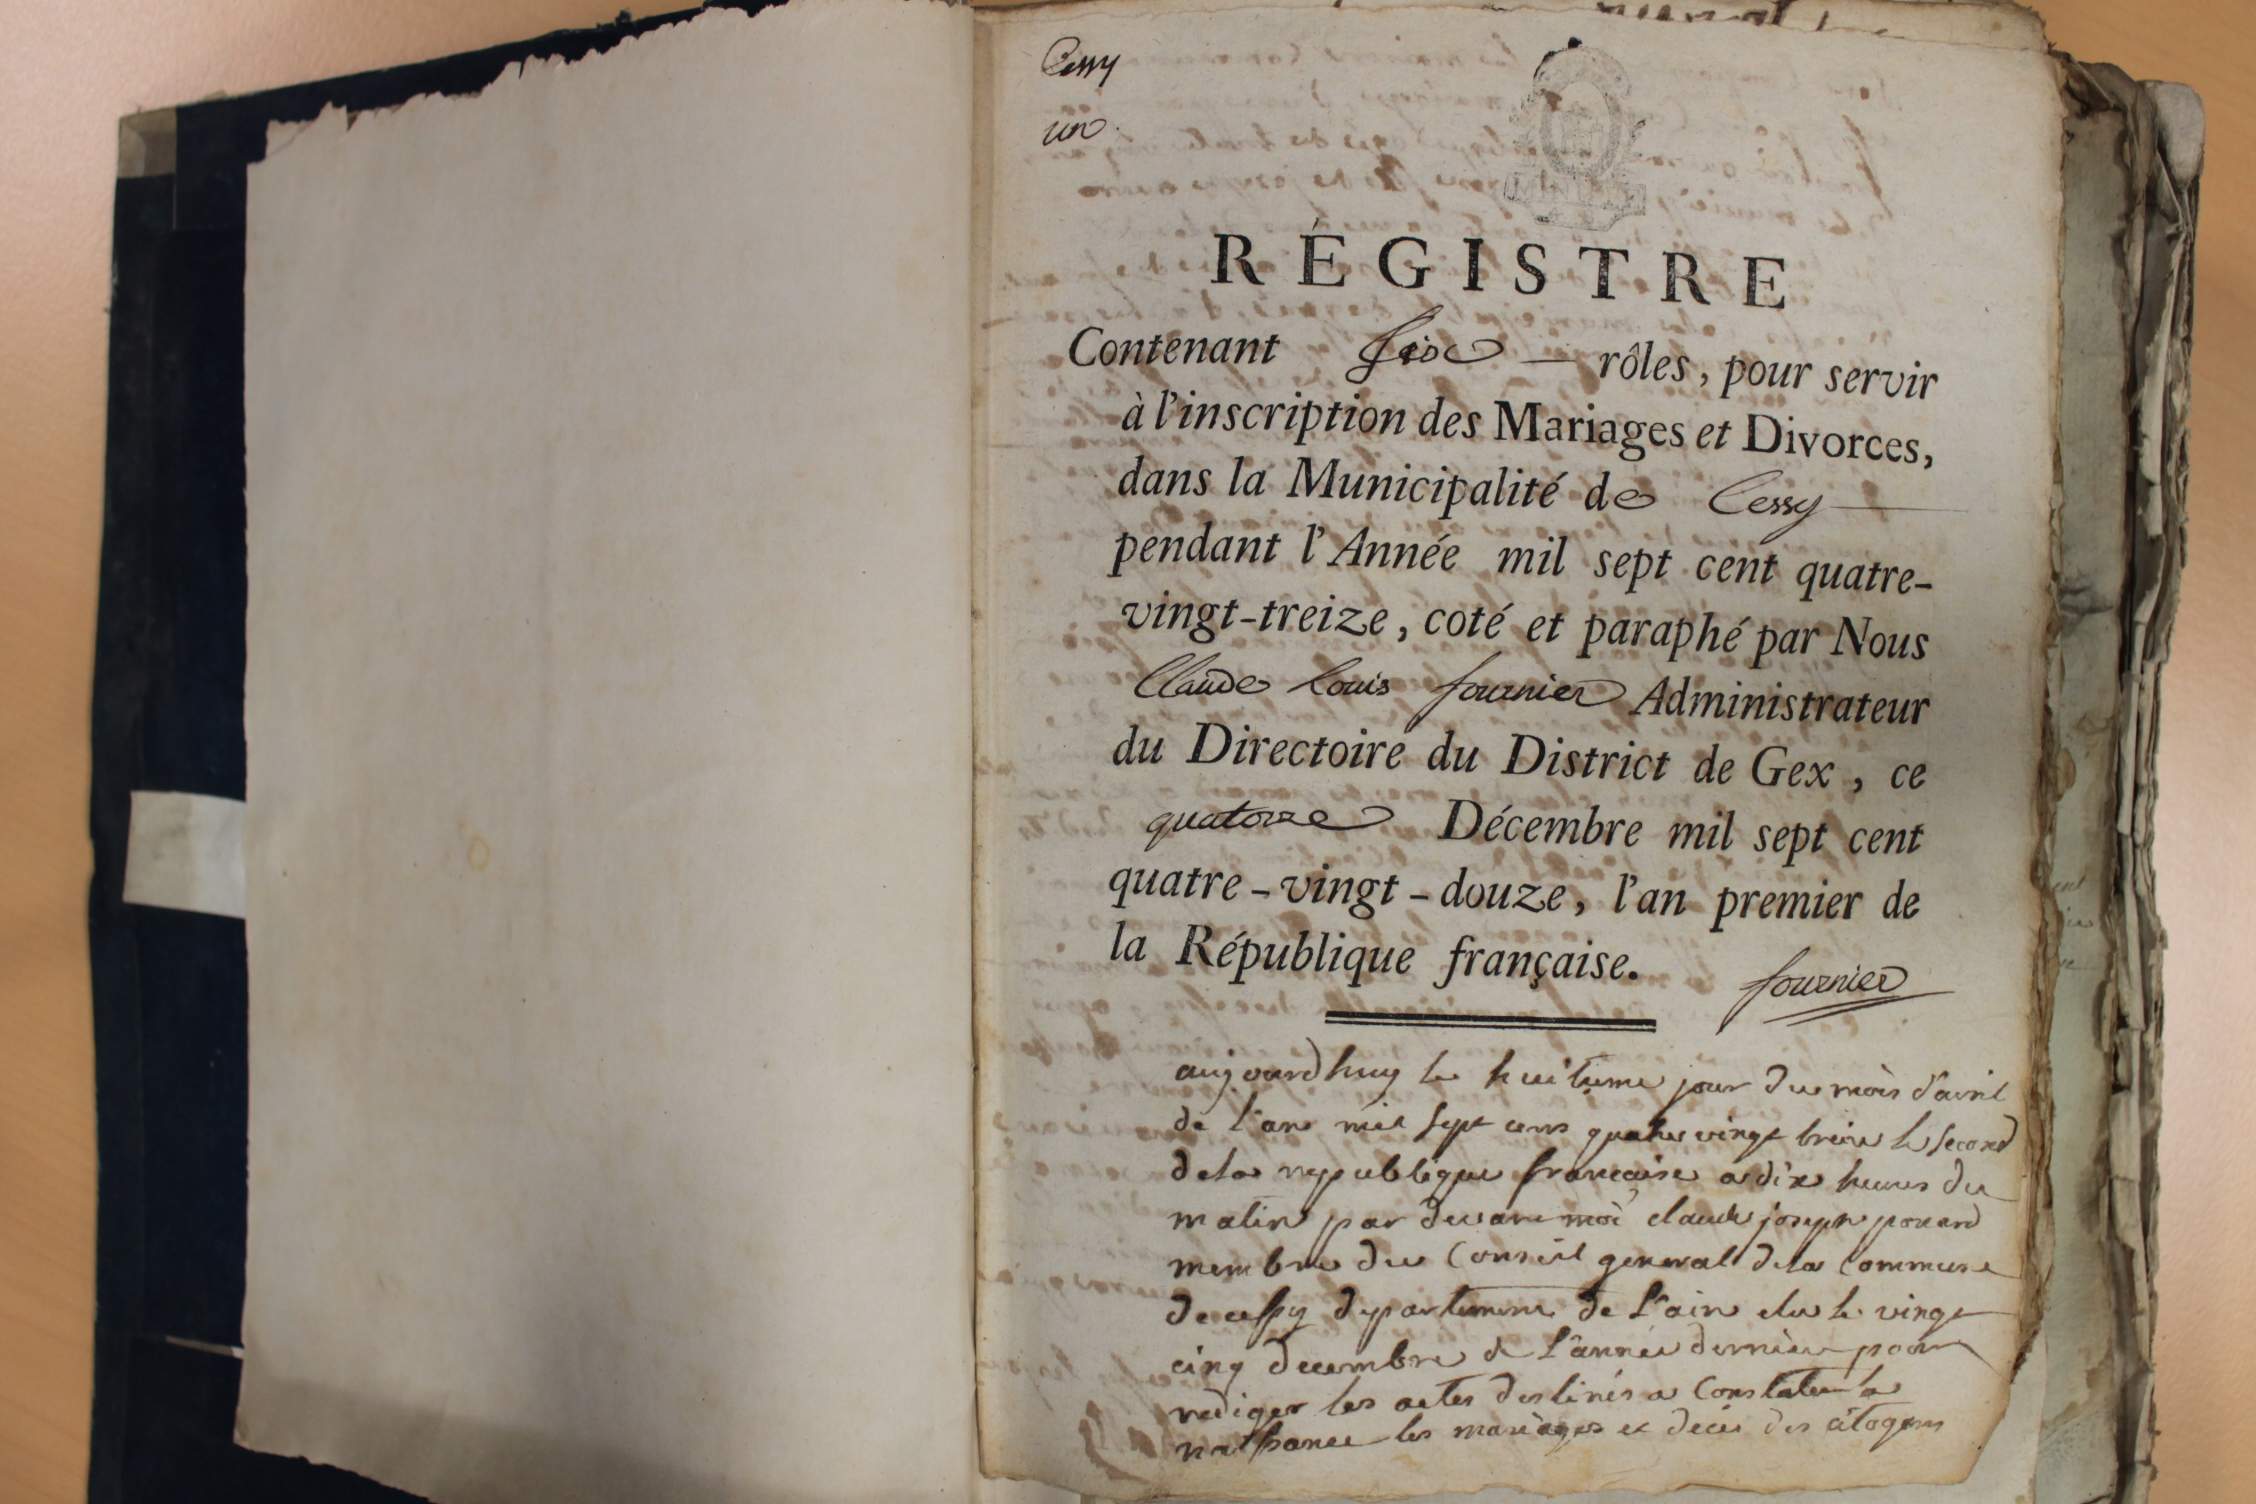 Cessy
un
RÉGISTRE
Contenant six rôles, pour servir
à l'inscription des Mariages et Divorces,
dans la Municipalité de Cessy
pendant l'Année mil sept cent quatre-
vingt-treize, coté et paraphé par Nous
Claude Louis fournier Administrateur
du Directoire du District de Gex, ce
quatorze Décembre mil sept cent
quatre-vingt-douze, l'an premier de
la République française.
fournier
aujourdhuy le huitieme jour du mois d'avril
de l'an mil sept cens quatre vingt treize le second
de la republique francaise a dix heures du
matin par devant moi claude joseph
membre du Conseil general de la Commune
de cessy departement de l'ain elu le vingt
cinq decembre de l'année derniere pour
rediger les actes destinés a Constater la
naissance les mariages et décès des citoyens